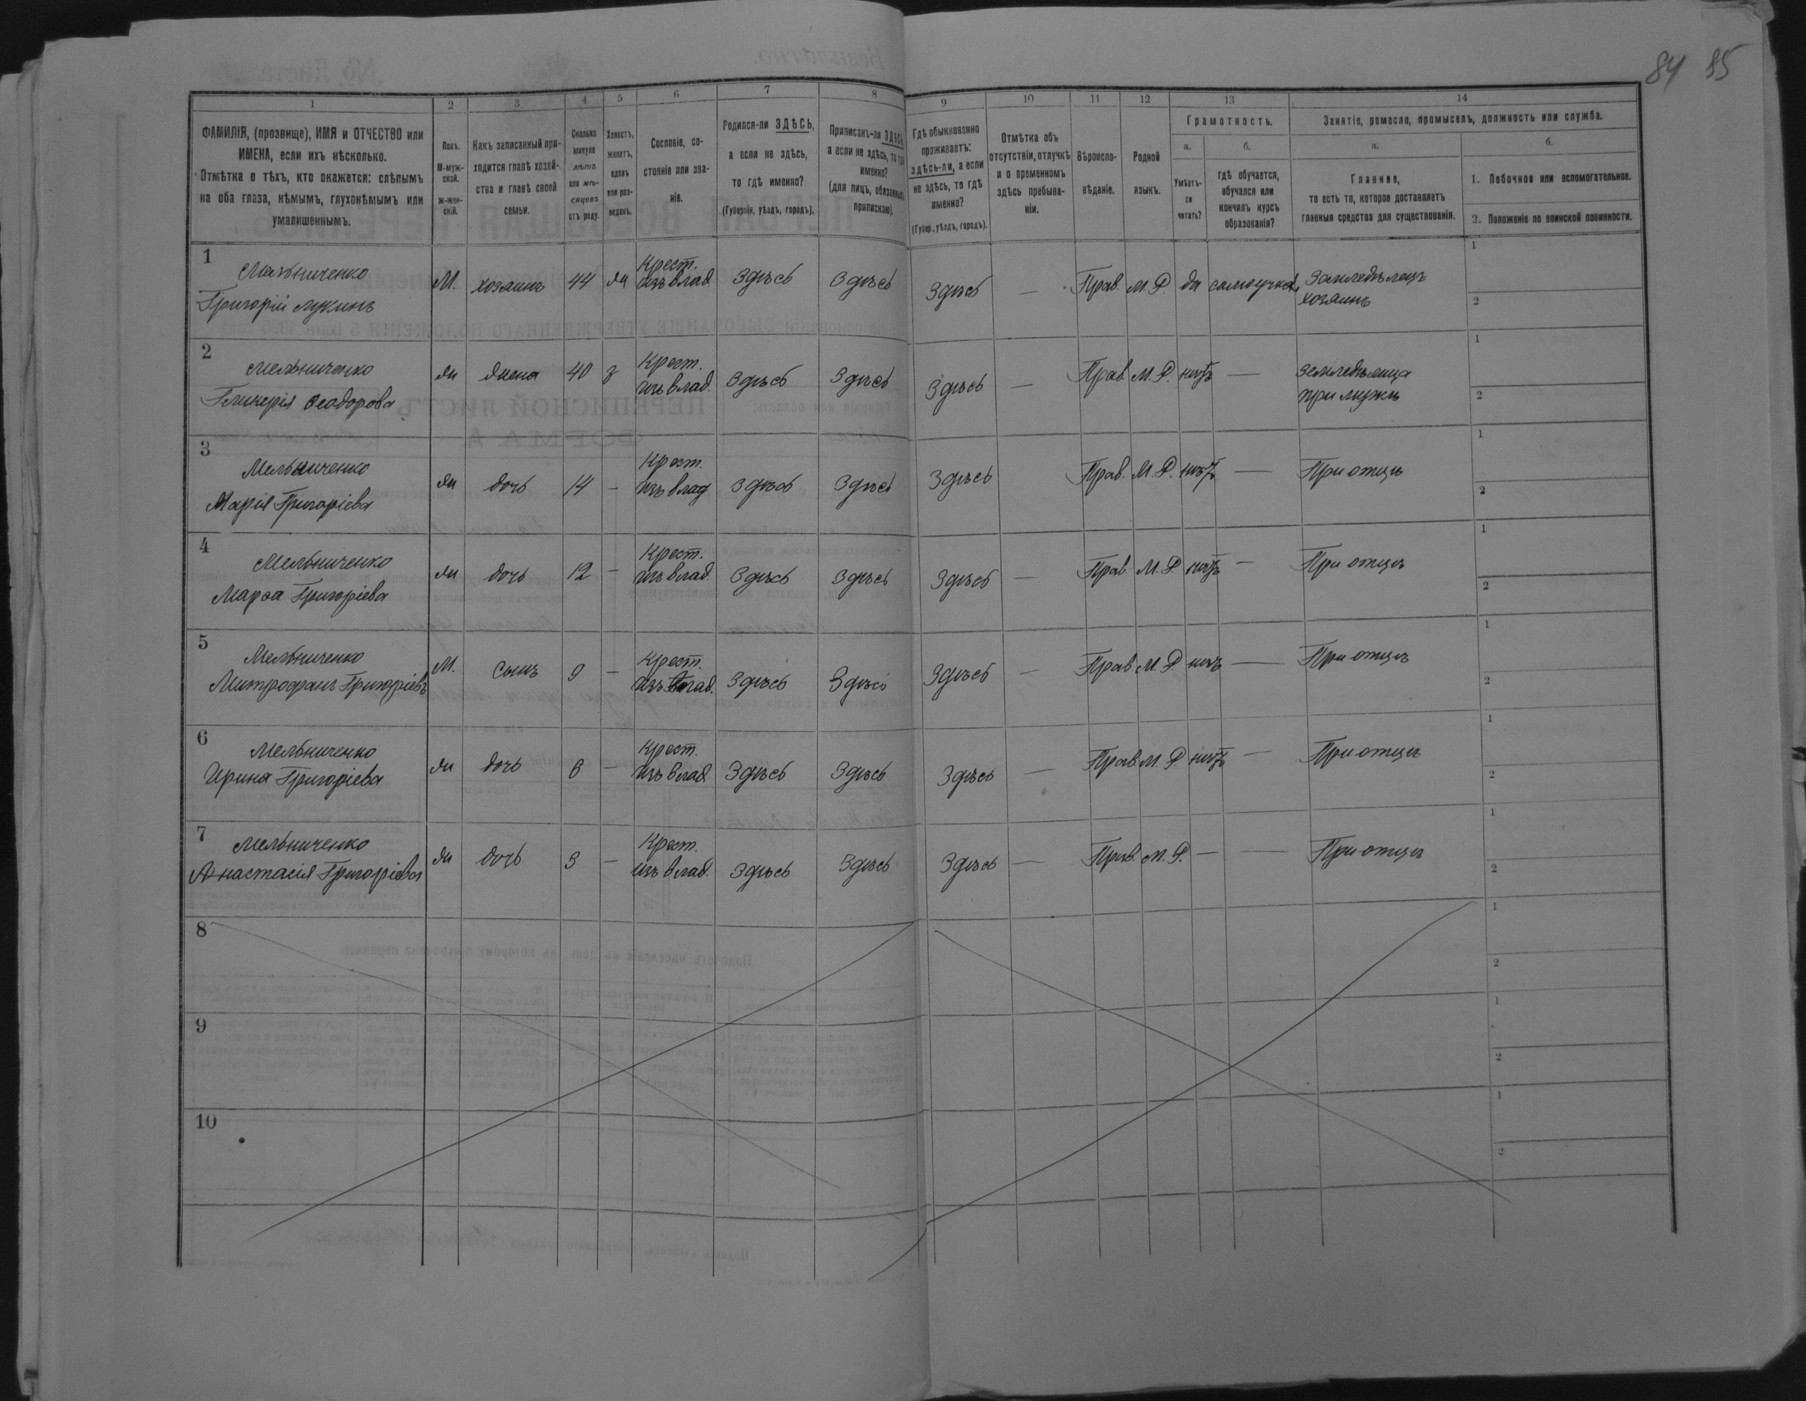 84 85
1 2 3 4 5 6 7 8 9 10 11 12 13 14
ФАМИЛІЯ, (прозвище), ИМЯ и ОТЧЕСТВО или
ИМЕНА, если ихъ нѣсколько.
Отмѣтка о тѣхъ, кто окажется: слѣпымъ
на оба глаза, нѣмымъ, глухонѣмымъ или
умалишеннымъ.
Полъ.
М-муж-
ской.
Ж-жен-
скій.
Какъ записанный при-
ходится главѣ хозяй-
ства и главѣ своей
семьи.
Сколько
минуло
лѣтъ
или мѣ-
сяцевъ
отъ роду.
Холостъ,
женатъ,
вдовъ
или раз-
веденъ.
Сословіе, со-
стояніе или зва-
ніе.
Родился-ли ЗДѢСЬ,
а если не здѣсь,
то гдѣ именно?
(Губернія, уѣздъ, городъ).
Приписанъ-ли ЗДѢСЬ,
а если не здѣсь, то гдѣ
именно?
(для лицъ, обязанныхъ
припискою).
Гдѣ обыкновенно
проживаетъ:
здѣсь-ли, а если
не здѣсь, то гдѣ
именно?
(Губер., уѣздъ, городъ).
Отмѣтка объ
отсутствіи, отлучкѣ
и о временномъ
здѣсь пребыва-
ніи.
Вѣроиспо-
вѣданіе.
Родной
языкъ.
Грамотность.
а.
Умѣетъ-
ли
читать?
б.
гдѣ обучается,
обучался или
кончилъ курсъ
образованія?
Занятіе, ремесло, промыселъ, должность или служба.
а.
Главное,
то есть то, которое доставляетъ
главныя средства для существованія.
б.
1. Побочное или вспомогательное.
2. Положеніе по воинской повинности.
1
Мельниченко
Григорій Лукинъ
М. хозяинъ 44 ж
Крест.
изъ влад. Здѣсь Здѣсь Здѣсь — Прав. М.Р. да самоучка
Земледѣлецъ
хозяинъ
1
2
2
Мельниченко
Гликерія Ѳеодорова
ж жена 40 з
Крест.
изъ влад. Здѣсь Здѣсь Здѣсь — Прав М.Р. нѣтъ —
земледѣлица
при мужѣ
1
2
3
Мельниченко
Марія Григоріева
ж дочь 14 —
Крест.
изъ влад Здѣсь Здѣсь Здѣсь Прав. М.Р. нѣтъ — При отцѣ
1
2
4
Мельниченко
Марѳа Григоріева
ж дочь 12 —
Крест.
изъ влад. Здѣсь Здѣсь Здѣсь — Прав М.Р нѣтъ — При отцѣ
1
2
5
Мельниченко
Митрофанъ Григоріевъ
М. сынъ 9 —
Крест.
изъ влад. Здѣсь Здѣсь Здѣсь — Прав М.Р. нѣтъ — При отцѣ
1
2
6
Мельниченко
Ирина Григоріева
ж дочь 6 —
Крест.
изъ влад Здѣсь Здѣсь Здѣсь — Прав М.Р нѣтъ — При отцѣ
1
2
7
Мельниченко
Анастасія Григоріева
ж дочь 3 —
Крест.
изъ влад. Здѣсь Здѣсь Здѣсь — Прав. М.Р. — — При отцѣ
1
2
8
1
2
9
1
2
10
1
2